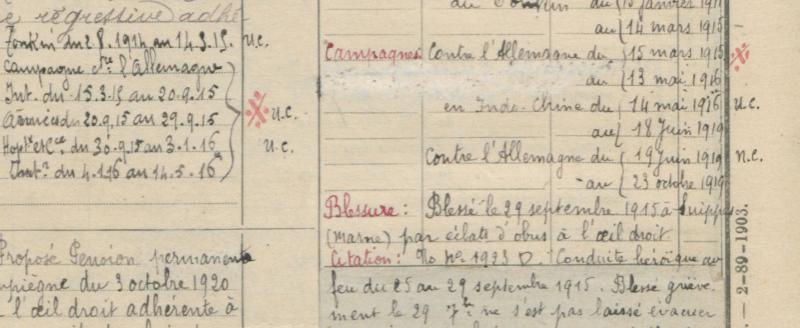 régressive adhé
Tonkin du 2 8. 1914 au 14.3.15. U.C.
Campagne ctre l'Allemagne
Int. du 15.3.15 au 20.9.15
Armées du 20.9.15 au 29.9.15 U.C.
du 30.9.15 au 3.1.16 U.C.
Intr. du 4.1.16 au 14.5.16
Proposé Pension permanente
mpiègne du 3 octobre 1920
l'œil droit adhérente à
au Tonkin du 15 janvier 1911
au 14 mars 1915 —
Campagnes Contre l'Allemagne du 15 mars 1915
au 13 mai 1916
en Indo-Chine du 14 mai 1916 U.C.
au 18 Juin 1919
Contre l'Allemagne du 19 Juin 1919 N.C.
au 23 octobre 1919
Blessure: Blessé le 29 septembre 1915 à Suippes
(Marne) par éclats d'obus à l'œil droit
Citation: No 1923 D. "Conduite héroïque au
feu du 25 au 29 septembre 1915. Blessé griève
ment le 29 7bre ne s'est pas laissé évacuer
— 2-89-1903.